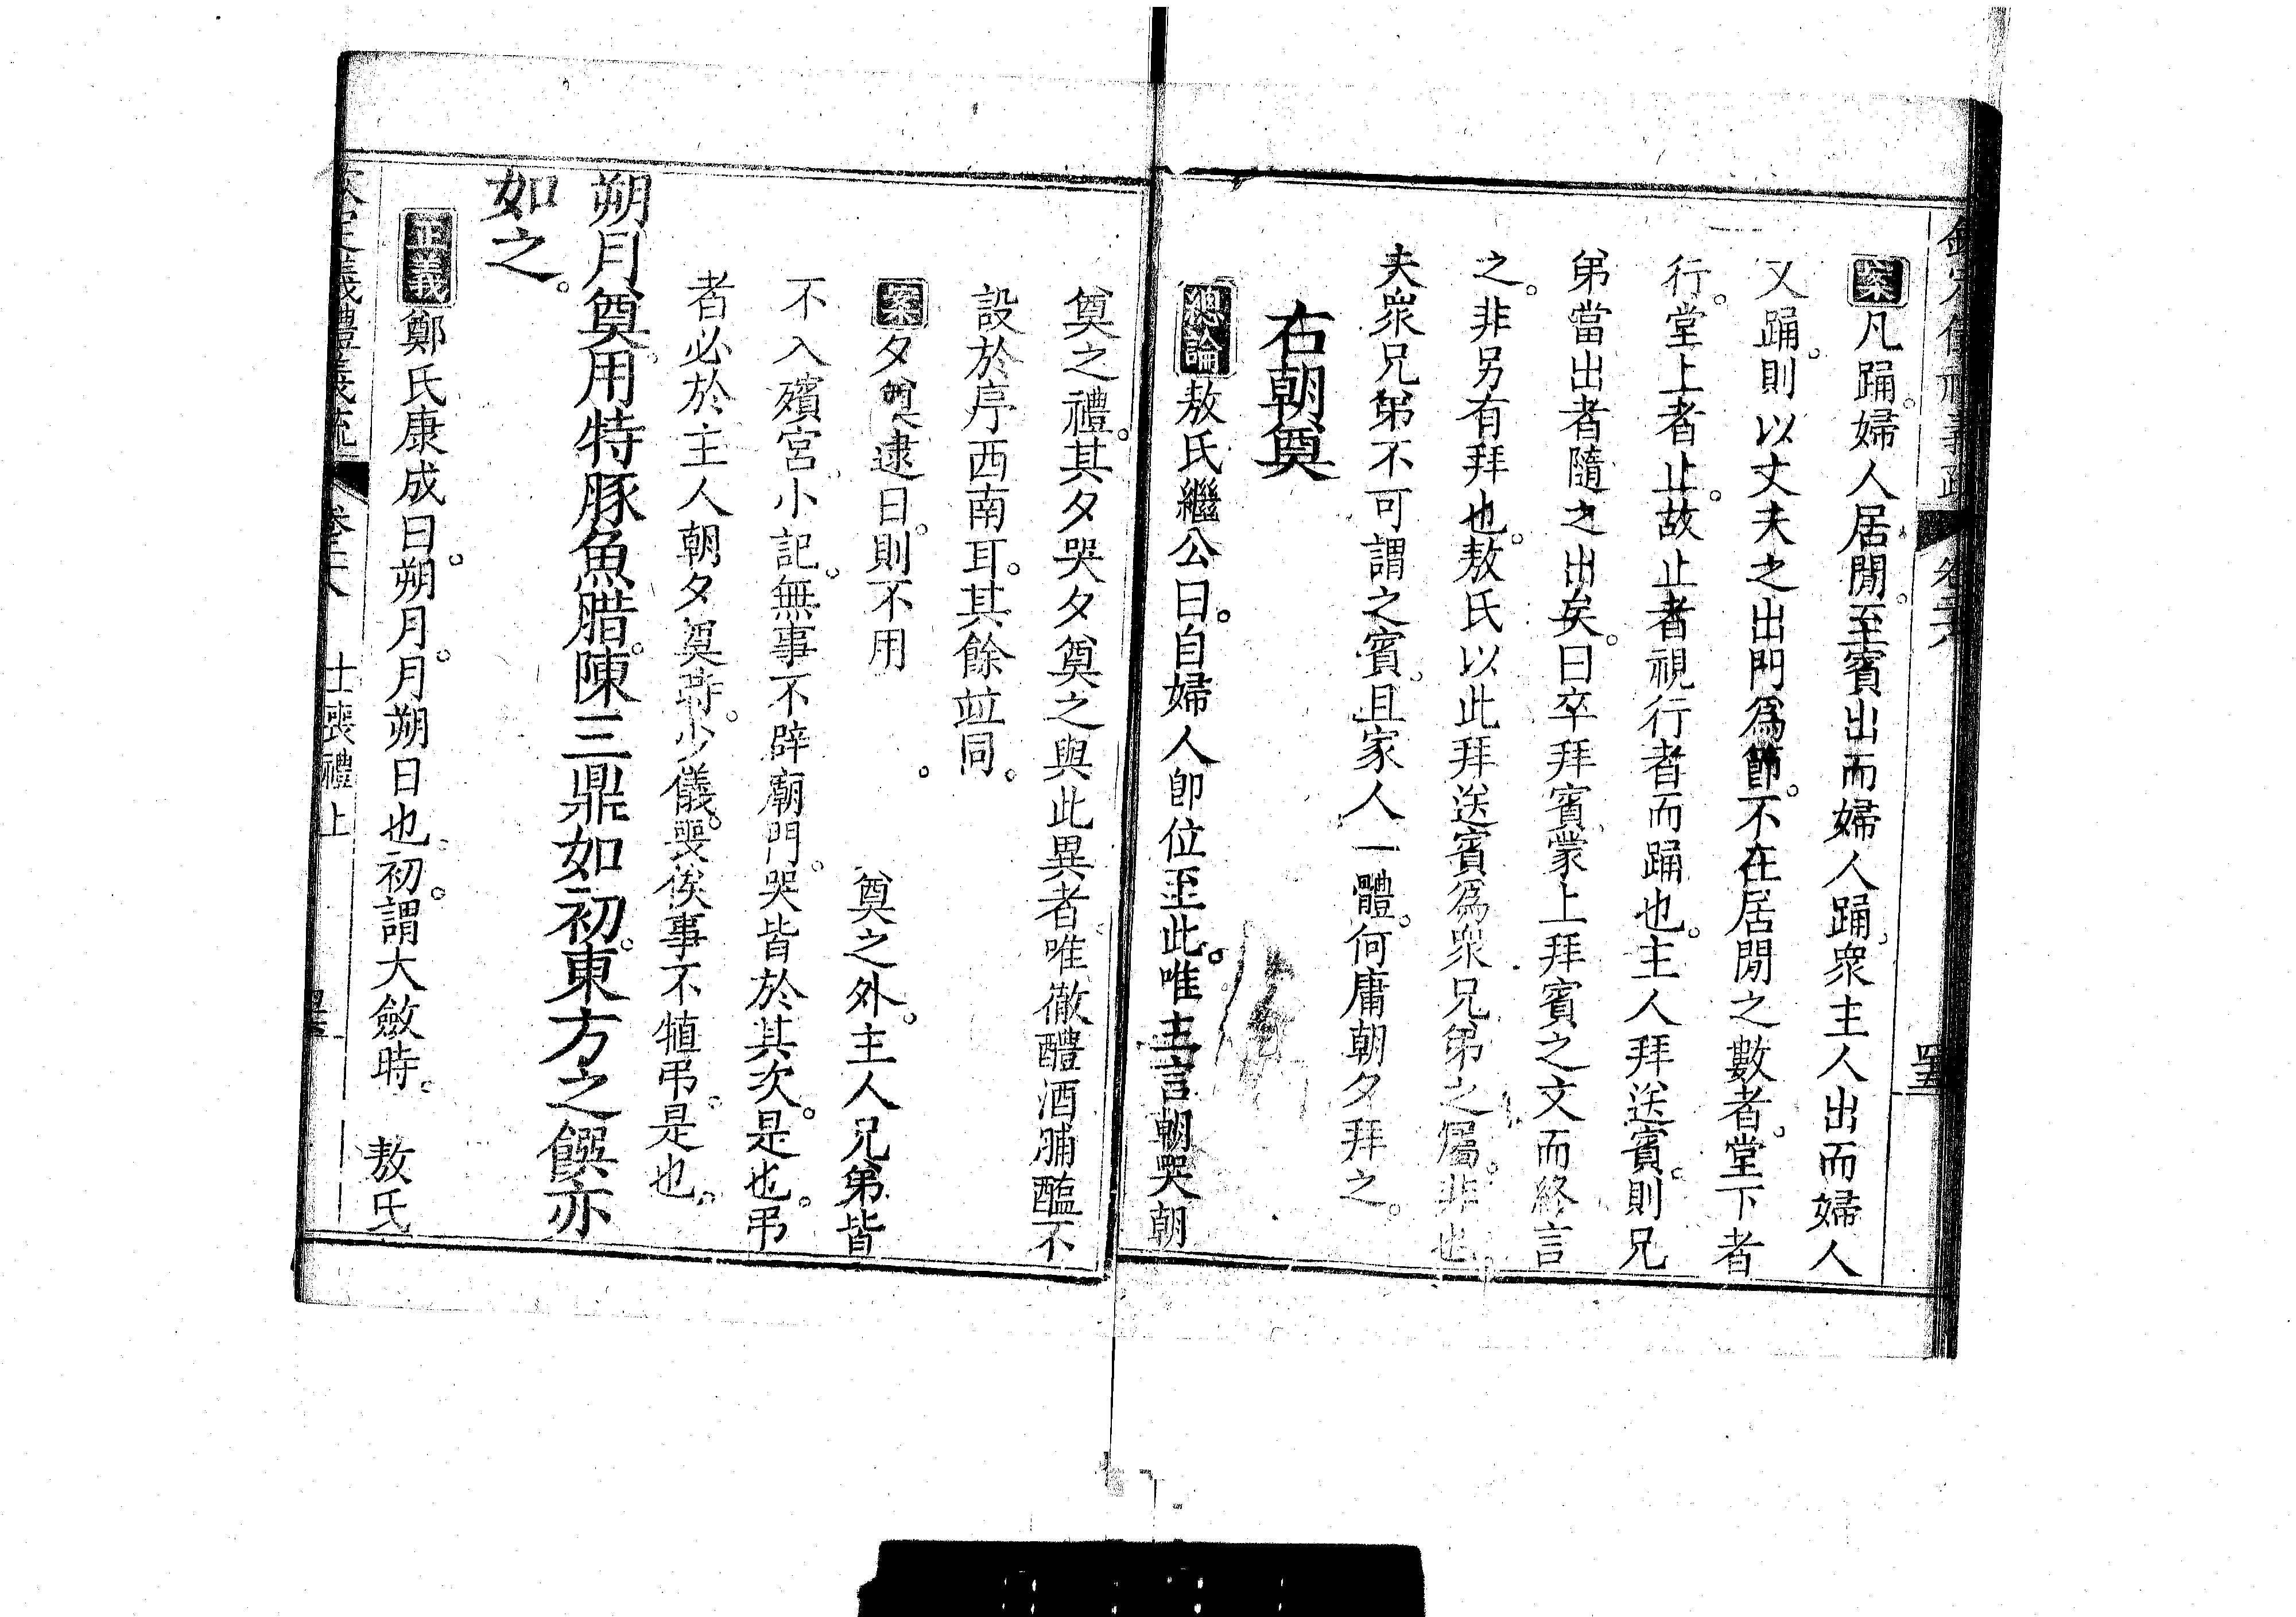 案凡踊。婦人居閒。至賓出而婦人踊。衆主人出而婦人
又踊。則以丈夫之出門爲節。不在居閒之數者。堂下者
行。堂上者止。故止者視行者而踊也。主人拜送賓。則兄
弟當出者隨之出矣。曰卒拜賓。蒙上拜賓之文而終言
之。非另有拜也。敖氏以此拜送賓爲衆兄弟之屬。非也
夫衆兄弟不可謂之賓。且家人一體。何庸朝夕拜之。
右朝奠
總論敖氏繼公曰。自婦人卽位至此。唯主言朝哭朝
奠之禮。其夕哭夕奠之與此異者。唯徹醴酒脯醢不
設於序西南耳。其餘竝同。
案夕奠逮日。則不用。奠之外。主人兄弟皆
不入殯宮。小記。無事不辟廟門。哭皆於其次。是也。弔
者必於主人朝夕奠時。少儀。喪俟事不犆弔。是也。
朔月奠。用特豚魚腊。陳三鼎如初。東方之饌亦
如之。
正義鄭氏康成曰。朔月。月朔日也。初。謂大斂時。 敖氏
士喪禮上